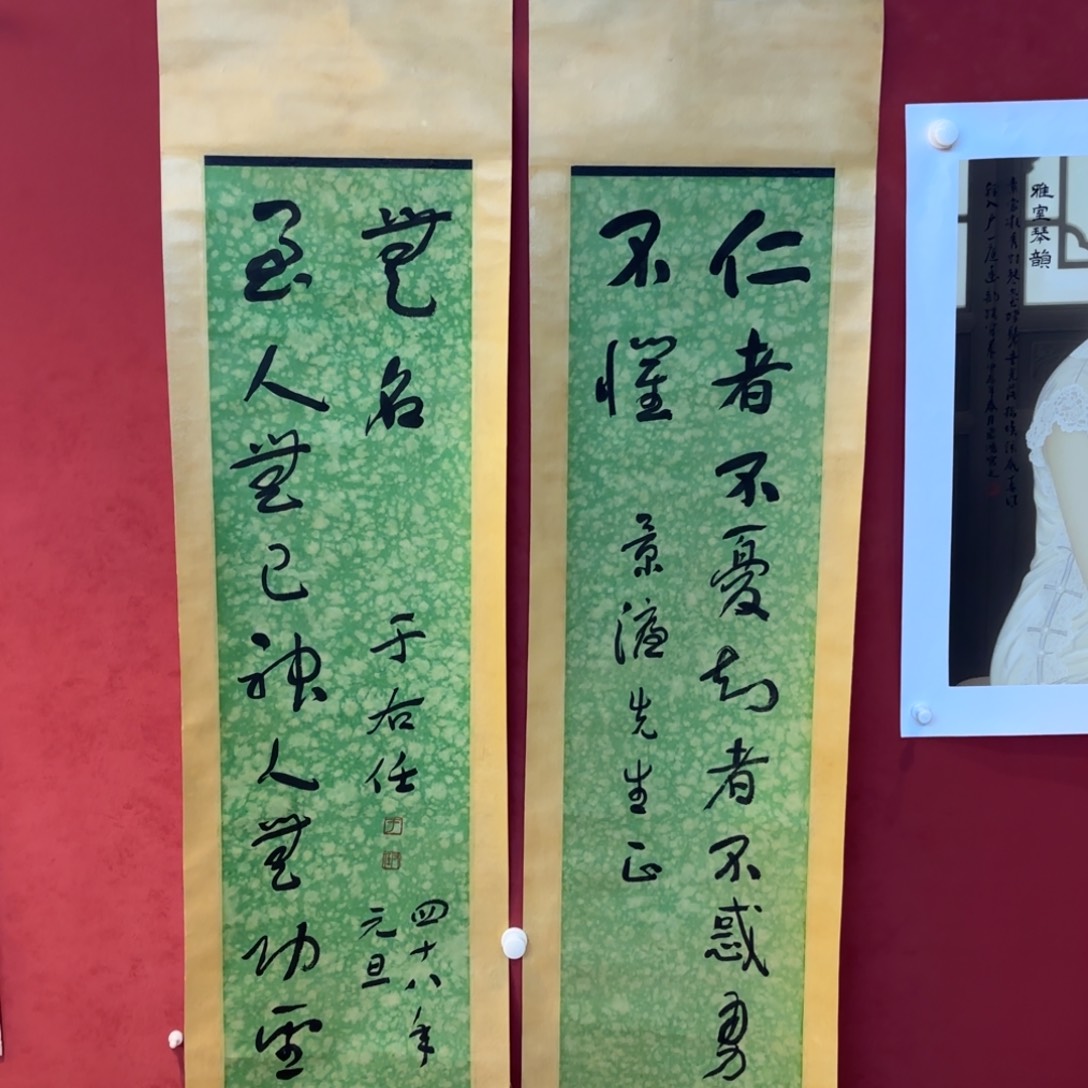 雅室琴韻
仁者不憂知者不惑勇
不懼
景濂先生正
至人無己神人無功聖
無名
于右任
四十八年
元旦